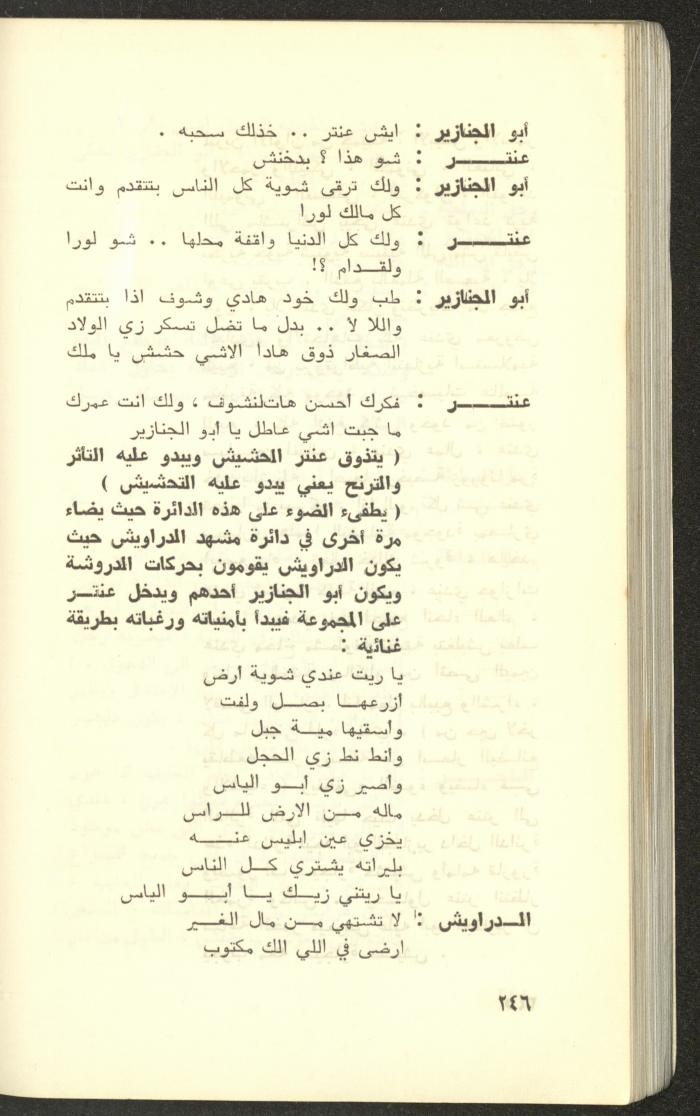 أبو الجنازير : ايش عنتر .. خذلك سحبه .
عنتـــــــر : شو هذا ؟ بدخنش
أبو الجنازير : ولك ترقى شوية كل الناس بتتقدم وانت
كل مالك لورا
عنتـــــــر : ولك كل الدنيا واقفة محلها .. شو لورا
ولقـــدام ؟!
أبو الجنازير : طب ولك خود هادي وشوف اذا بتتقدم
واللا لأ .. بدل ما تضل تسكر زي الولاد
الصغار ذوق هادا الاشي حشش يا ملك
عنتـــــــر : فكرك أحسن هاتلنشوف ، ولك انت عمرك
ما جبت اشي عاطل يا أبو الجنازير
( يتذوق عنتر الحشيش ويبدو عليه التأثر
والترنح يعني يبدو عليه التحشيش )
( يطفىء الضوء على هذه الدائرة حيث يضاء
مرة أخرى في دائرة مشهد الدراويش حيث
يكون الدراويش يقومون بحركات الدروشة
ويكون أبو الجنازير أحدهم ويدخل عنتـــر
على المجموعة فيبدأ بأمنياته ورغباته بطريقة
غنائية :
يا ريت عندي شوية أرض
أزرعهـــا بصـــل ولفت
وأسقيها ميـــة جبل
وانط نط زي الحجل
وأصير زي أبـــو الياس
ماله مـــن الارض للـــراس
يخزي عين ابليس عنـــــه
بليراته يشتري كـــل الناس
يا ريتني زيـــك يـــا أبـــو الياس
المـــدراويش : لا تشتهي مـــن مال الغـــير
ارضى في اللي الك مكتوب
٢٤٦